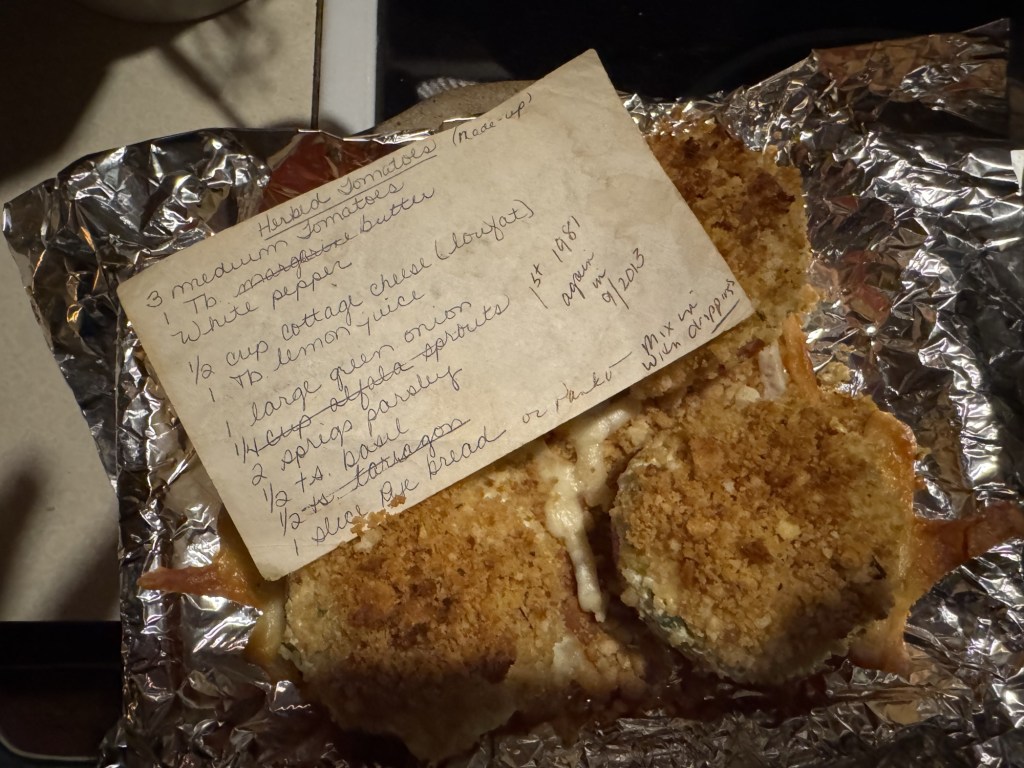 Herbed Tomatoes (Made-up)
3 medium Tomatoes
1 Tb margarine butter
White pepper
1/2 cup cottage cheese (lowfat)
1 Tb lemon juice
1 large green onion
1/4 cup alfala sprouts
2 sprigs parsley
1/2 ts. basil
1/2 ts. tarragon
1 slice Rye bread or Panko
1st 1981
again
in
9/2013
Mix in
with drippings